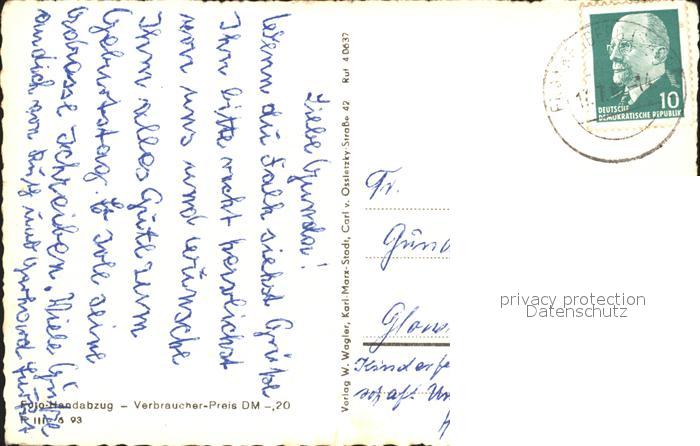 Liebe Gunda!
Wenn du Falk siehst Grüße
Ihn bitte recht herzlichst
von uns und wünsche
Ihm alles Gute zum
Geburtstag. Er soll seine
Adresse schreiben. Viele Grüße
auch von
und Gerhard
Foto-Handabzug – Verbraucher-Preis DM –,20
III 6 93
Verlag W. Wagler, Karl-Marx-Stadt, Carl v. Ossietzky-Straße 42 Ruf 40637
DEUTSCHE
DEMOKRATISCHE REPUBLIK
10
Fr.
Günd
Glaus
Kinderfe
schaft Un
privacy protection
Datenschutz